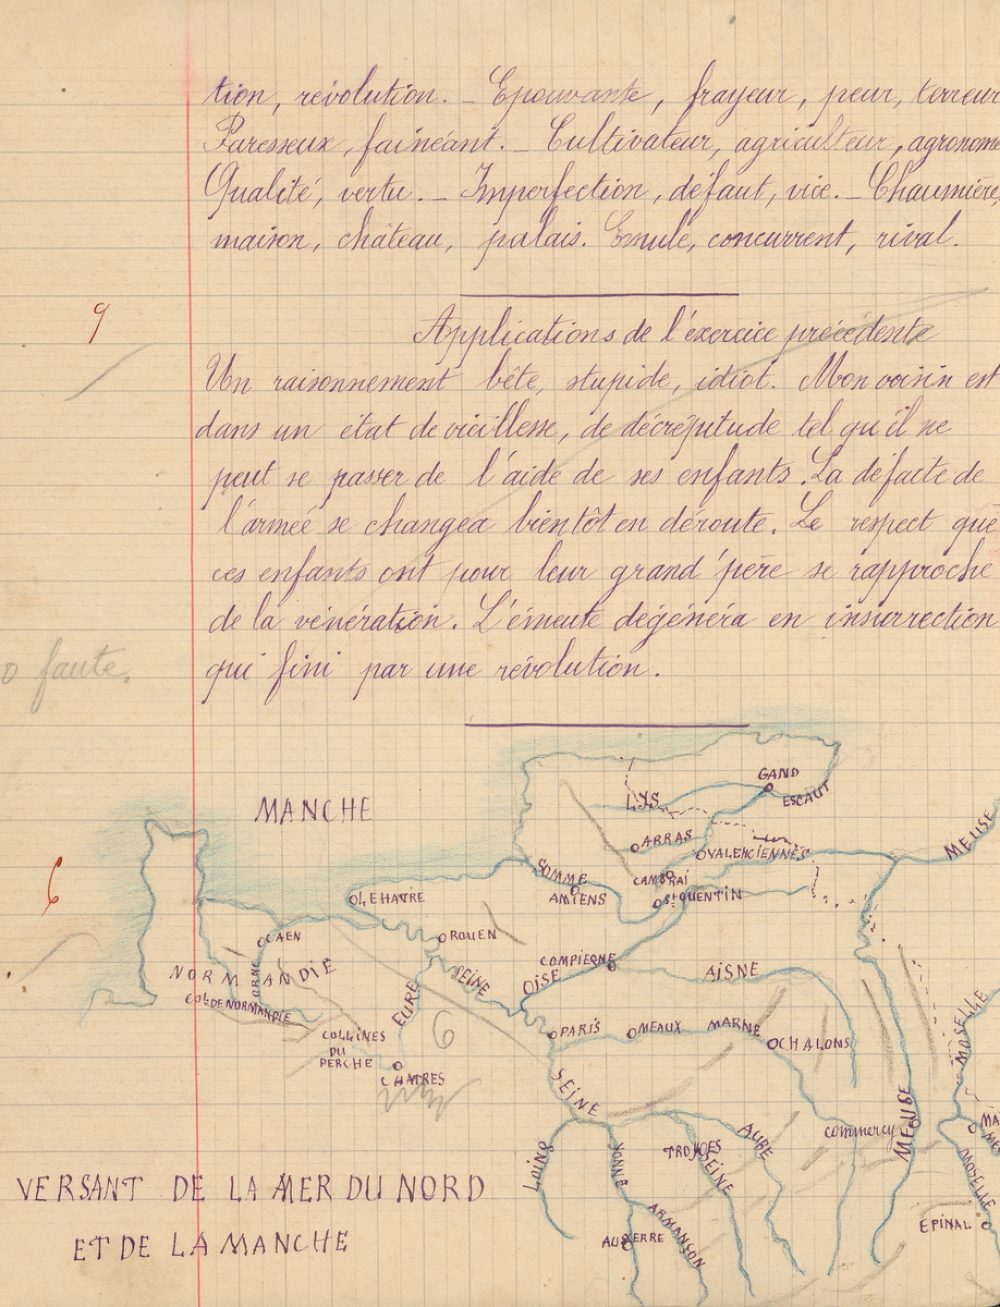 tion, révolution. _ Epouvante, frayeur, peur, terreur
Paresseux, fainéant. _ Cultivateur, agriculteur, agronome
Qualité, vertu. _ Imperfection, défaut, vice. _ Chaumière,
maison, château, palais. Emule, concurrent, rival.
9
Applications de l'éxercice précédente
Un raisonnement bête, stupide, idiot. Mon voisin est
dans un état de vieillesse, de décrépitude tel qu'il ne
peut se passer de l'aide de ses enfants. La défaite de
l'armée se changea bientôt en déroute. Le respect que
ces enfants ont pour leur grand'père se rapproche
de la vénération. L'émeute dégénéra en insurrection
qui fini par une révolution.
0 faute.
GAND
ESCAUT
LYS
MANCHE
ARRAS
VALENCIENNES
MEUSE
6
SOMME
CAMBRAI
LE HAVRE
AMIENS
St QUENTIN
CAEN
ROUEN
COMPIEGNE
NORMANDIE
ORNE
SEINE
OISE
AISNE
COL. DE NORMANDIE
EURE
MOSELLE
COLLINES
DU
PERCHE
6
PARIS
MEAUX
MARNE
CHALONS
CHATRES
SEINE
MEUSE
COMMERCY
AUBE
TROYES
LOING
YONNE
SEINE
MOSELLE
VERSANT DE LA MER DU NORD
ARMANSON
EPINAL
ET DE LA MANCHE
AUXERRE